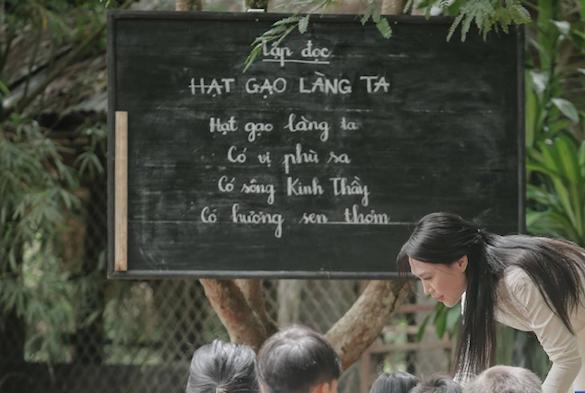 Tập đọc
HẠT GẠO LÀNG TA
Hạt gạo làng ta
Có vị phù sa
Có sông Kinh Thầy
Có hương sen thơm